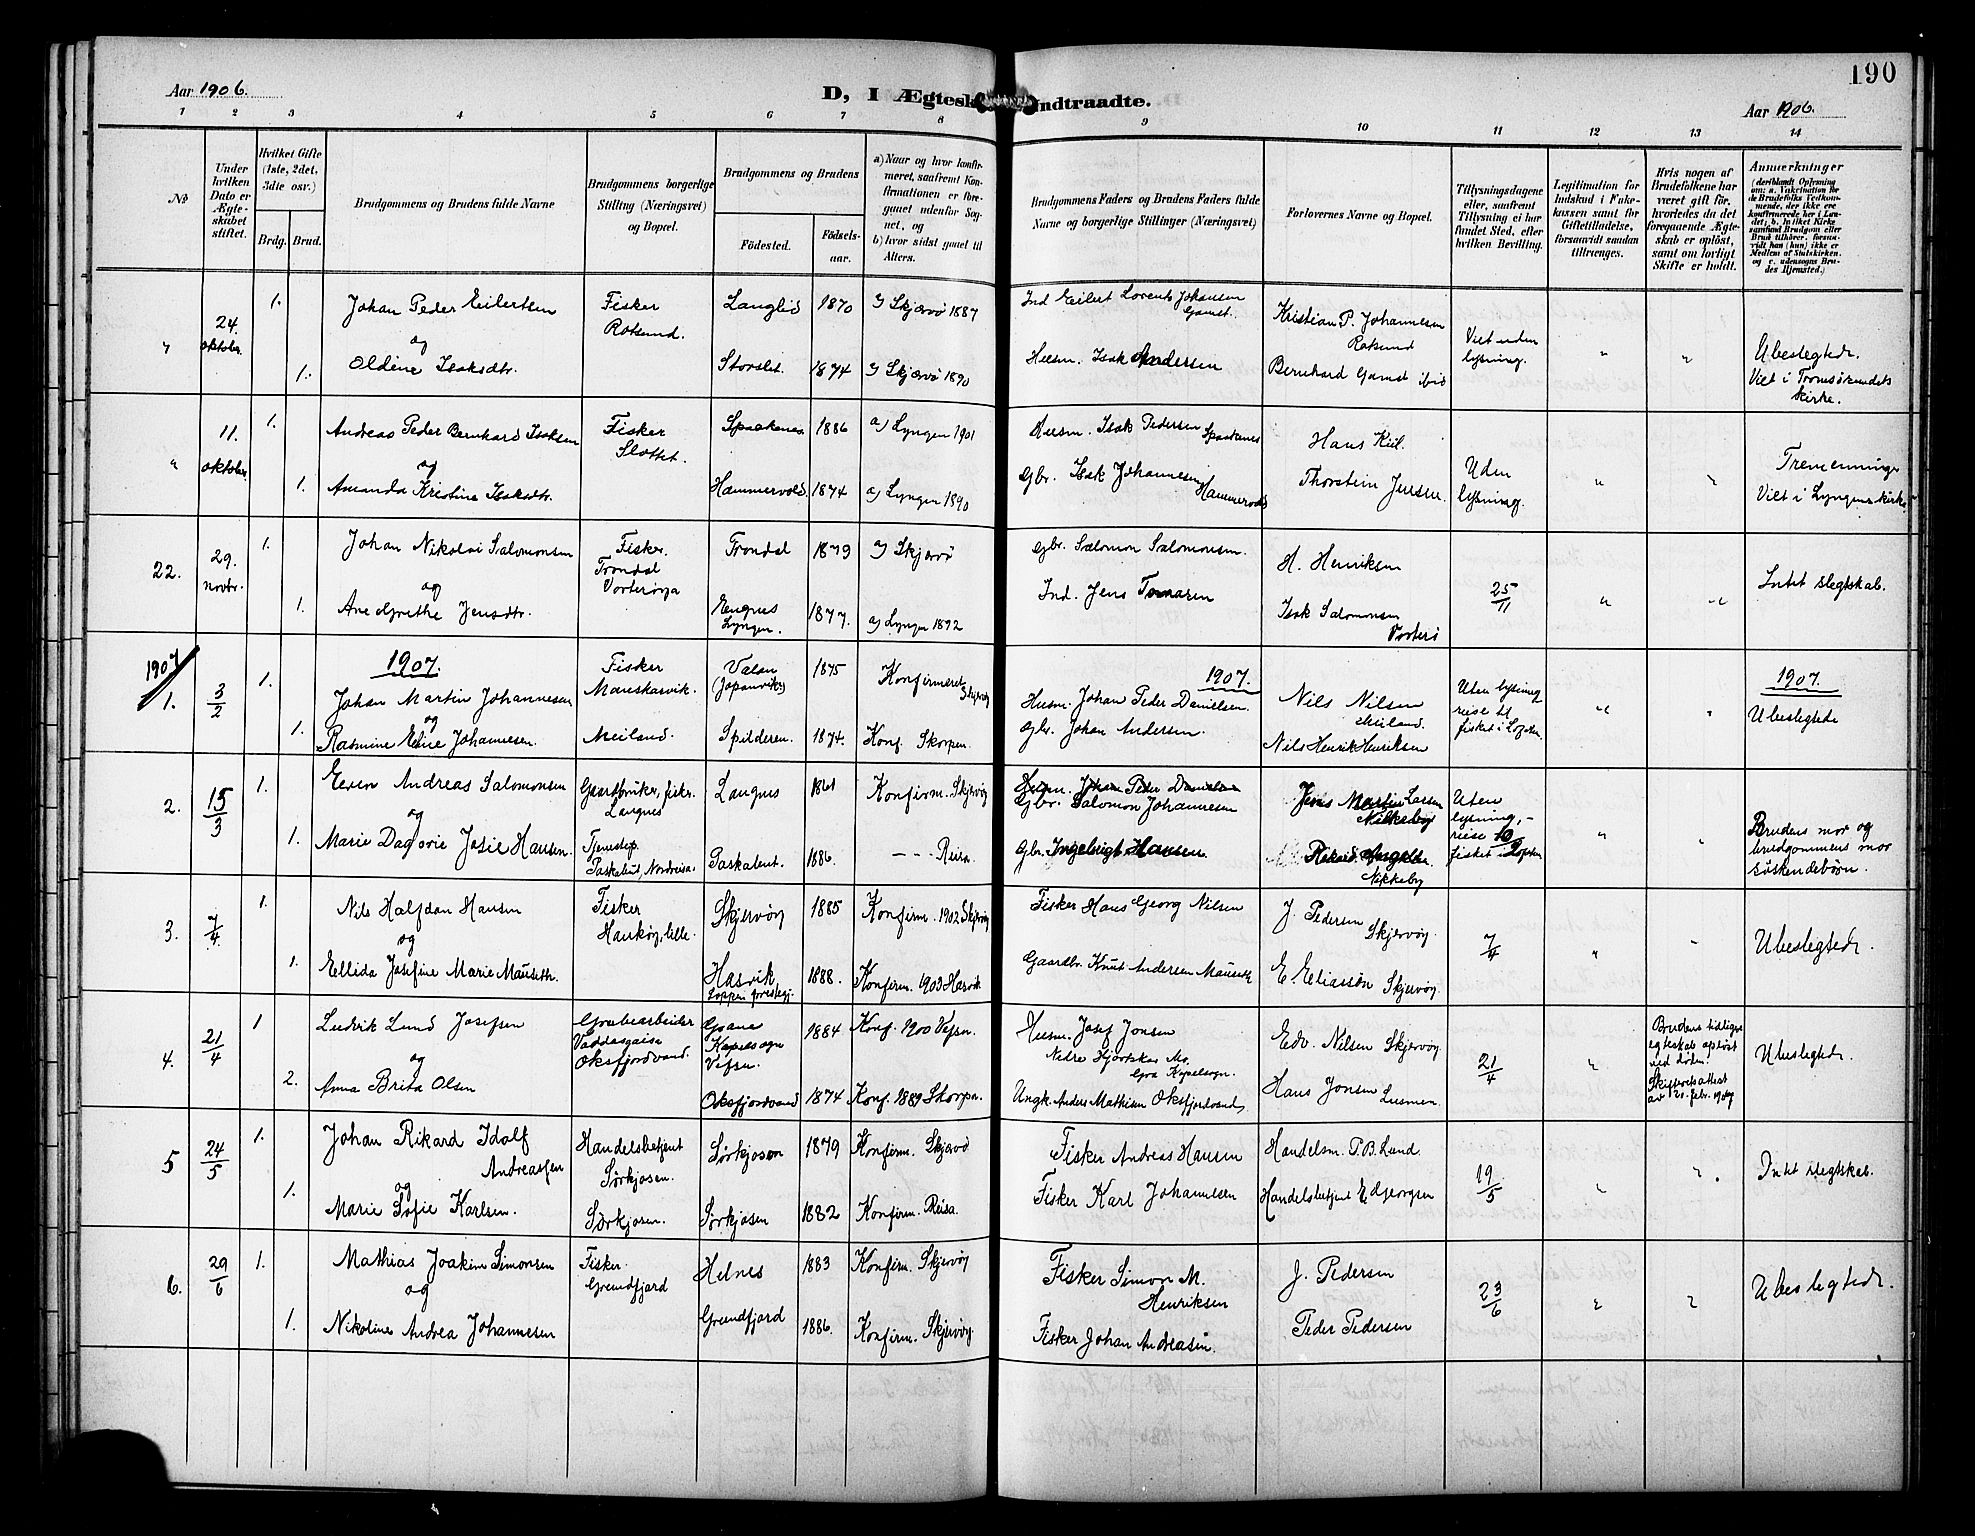 190
Aar 1906.
D, I Ægtesk
Indtraadte.
Aar 1906.
1 2 3 4 5 6 7 8 9 10 11 12 13 14
No
Under hvilken Dato er Ægteskabet stiftet.
Hvilket Gifte (1ste, 2det, 3die osv.)
Brdg. Brud.
Brudgommens og Brudens fulde Navne
Brudgommens borgerlige Stilling (Næringsvei) og Bopæl.
Brudgommens og Brudens
Fødested. Fødselsaar.
a) Naar og hvor konfirmeret, saafremt Konfirmationen er foregaaet udenfor Sognet, og
b) hvor sidst gaaet til Alters.
Brudgommens Faders og Brudens Faders fulde Navne og borgerlige Stillinger (Næringsvei)
Forlovernes Navne og Bopæl.
Tillysningsdagene eller, saafremt Tillysning ei har fundet Sted, efter hvilken Bevilling.
Legitimation for Indskud i Enkekassen samt for Giftetilladelse, forsaavidt saadan tiltrænges.
Hvis nogen af Brudefolkene har været gift før, hvorledes da det foregaaende Ægteskab er opløst, samt om lovligt Skifte er holdt.
Anmerkninger
(deriblandt Oplysning om: a. Vakcination for de Brudefolks Vedkommende, der ikke ere konfirmerede her i Landet; b. hvilket Kirkesamfund Brudgom eller Brud tilhører, forsaavidt han (hun) ikke er Medlem af Statskirken, og c. udensogns Brudes Hjemsted.)
" 24. oktober
1. Johan Peder Eilertsen Fisker Rotsund Langlid 1870 Skjervø 1887
og
1. Oldine Isaksdtr. Storslet. 1874 Skjervø 1890
Ind Eilert Lorents Johansen Gamst.
Husm. Isak Andersen
Kristian P. Johannesen Rotsund
Bernhard Gamst ibid
Viet uden lysning. " "
Ubeslegtede. Viet i Tromsøsundets kirke.
" 11. oktober
1. Andreas Peder Bernhard Isaksen Fisker Slottet. Spaakenes 1886 a) Lyngen 1901
og
1. Amanda Kristine Isaksdtr. Hammervold. 1874 a) Lyngen 1890
Husm. Isak Pedersen Spaakenes
Gbr. Isak Johannesen Hammervold
Hans Kiil.
Thorstein Jensen.
Uden lysning. " "
Tremenninge Viet i Lyngens kirke
22. 29. novbr.
1. Johan Nikolai Salomonsen Fisker. Trondal Vorterøya Trondal 1879 a) Skjervø
og
1. Ane Grethe Jensdtr. Engnes Lyngen. 1877. a) Lyngen 1892
Gbr. Salomon Salomonsen.
Ind. Jens
H. Henriksen
Isak Salomonsen Vorterø
25/11 " "
Intet slegtskab.
1907
1. 3/2
1907.
1. Johan Martin Johannesen Fisker Mareskarvik. Valan 1875 Konfirmeret Skjervøy
og
1. Rasmine Eline Johannesen. Meiland. Spilderen. 1874. Konf. Skorpen.
1907.
Husm. Johan Peder Danielsen.
Gbr. Johan Andersen.
Nils Nilsen Meiland.
Nils Henrik Henriksen
Uten lysning reise til fisket i Lofoten. " "
1907.
Ubeslegtede
2. 15/3
1. Even Andreas Salomonsen Gaardbruker, fisker. Langnes Langnes 1861 Konfirm. Skjervøy
og
1. Marie Dagorie Josie Hansen. Tjenestep. Paskalent, Nordreisa. Paskalent. 1886. — — Reisa.
Husm. Johan Peder Danielsen
Gbr. Salomon Johannesen
Gbr. Ingebrigt Hansen.
Jens Martin Larsen Nikkeby
Rikard Nikkeby
Uten lysning, – reise til fisket i Lofoten " "
Brudens mor og brudgommens mor søskendebørn.
3. 7/4
1. Nils Halfdan Hansen Fisker Haukøy, lille. Skjervøy 1885 Konfirm. 1902 Skjervøy
og
1. Ellida Josefine Marie Mauseth. Hasvik Loppen prestegj. 1888. Konfirm. 1903 Hasvik
Fisker Hans Georg Nilsen
Gaardbr. Knut Andersen Mauseth
J. Pedersen Skjervøy.
E. Eliassøn Skjervøy.
7/4 " "
Ubeslegtede.
4. 21/4
1 Ludvik Lund Josefsen Grubearbeider Vaddasgaisa Oksfjordvand. Grane Kapelsogn Vefsn. 1884 Konf. 1900 Vefsn.
og
2. Anna Brita Olsen Oksfjordvand 1874 Konf. 1889 Skorpen.
Husm. Josef Jonsen Nedre Hjortskar Mo. Kapelsogn.
Ungk. Anders Mathisen Oksfjordvand
Edv. Nilsen Skjervøy
Hans Jonsen
21/4 "
Brudens tidligere egteskab opløst ved døden. Skifteretsattest av 20. febr. 1907
Ubeslegtede.
5 24/5
1. Johan Rikard Idolf Andreassen Handelsbetjent Sørkjosen. Sørkjosen 1879 Konfirm. Skjervø
og
1. Marie Sofie Karlsen. Sørkjosen. Sørkjosen 1882 Konfirm. Reisa.
Fisker Andreas Hansen
Fisker Karl Johannesen
Handelsm. P. B. Lund.
Handelsbetjent E. Georgsen
19/5 " "
Intet slegtskab.
6. 29/6
1. Mathias Joakim Simonsen Fisker. Grundfjord Helnes 1883 Konfirm. Skjervøy
og
1. Nikoline Andrea Johannesen Grundfjord 1886. Konfirm. Skjervøy.
Fisker Simon M. Henriksen
Fisker Johan Andreasen.
J. Pedersen
Peder Pedersen
23/6 " "
Ubeslegtede.